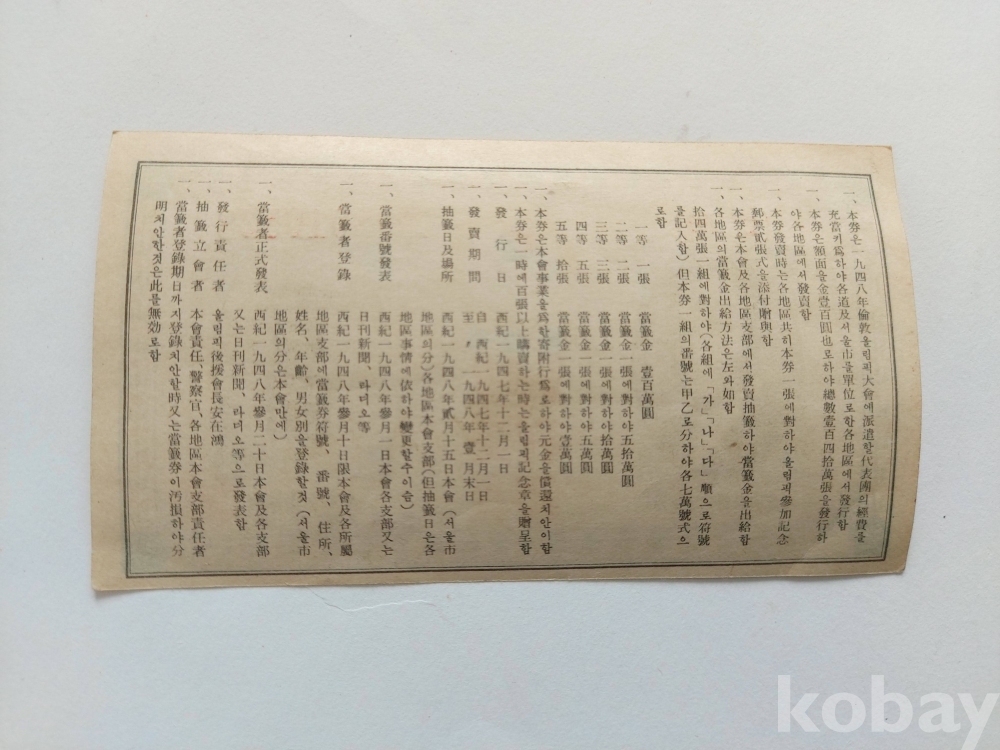 一、本券은一九四八年倫敦올림픽大會에派遣할代表團의經費를
充當키爲하야各道及서울市를單位로한各地區에서發行함
一、本券은額面을金壹百圓也로하야總數壹百四拾萬張을發行하
야各地區에서發賣함
一、本券發賣時는各地區共히本券一張에對하야올림픽參加記念
郵票貳張式을添付贈與함
一、本券은本會及各地區支部에서發賣抽籤하야當籤金을出給함
一、各地區의當籤金出給方法은左와如함
拾四萬張一組에對하야(各組에「가」「나」「다」順으로符號
를記入함)但本券一組의番號는甲乙로分하야各七萬號式으
로함
一等 一張 當籤金 壹百萬圓
二等 二張 當籤金 一張에對하야五拾萬圓
三等 三張 當籤金 一張에對하야拾萬圓
四等 五張 當籤金 一張에對하야五萬圓
五等 拾張 當籤金一張에對하야壹萬圓
一、本券은本會事業을爲한寄附行爲로하야元金을償還치안이함
一、本券은一時에百張以上購買하는時는올림픽記念章을贈呈함
一、發行日 西紀一九四七年十二月一日
一、發賣期間 自 西紀一九四七年十二月一日
至 〃 一九四八年 壹月末日
一、抽籤日及場所 西紀一九四八年貳月十五日本會(서울市
地區의分)各地區本會支部(但抽籤日은各
地區事情에依하야變更할수이슴)
一、當籤番號發表 西紀一九四八年參月一日本會各支部又는
日刊新聞、라디오等
一、當籤者登錄 西紀一九四八年參月十日限本會及各所屬
地區支部에當籤券符號、番號、住所、
姓名、年齡、男女別을登錄할것(서울市
地區의分은本會만에)
一、當籤者正式發表 西紀一九四八年參月二十日本會及各支部
又는日刊新聞、라디오等으로發表함
一、發行責任者 올림픽後援會長安在鴻
一、抽籤立會者 本會責任、警察官、各地區本會支部責任者
一、當籤者登錄期日까지登錄치안한時又는當籤券이汚損하야分
明치안한것은此를無効로함
kobay